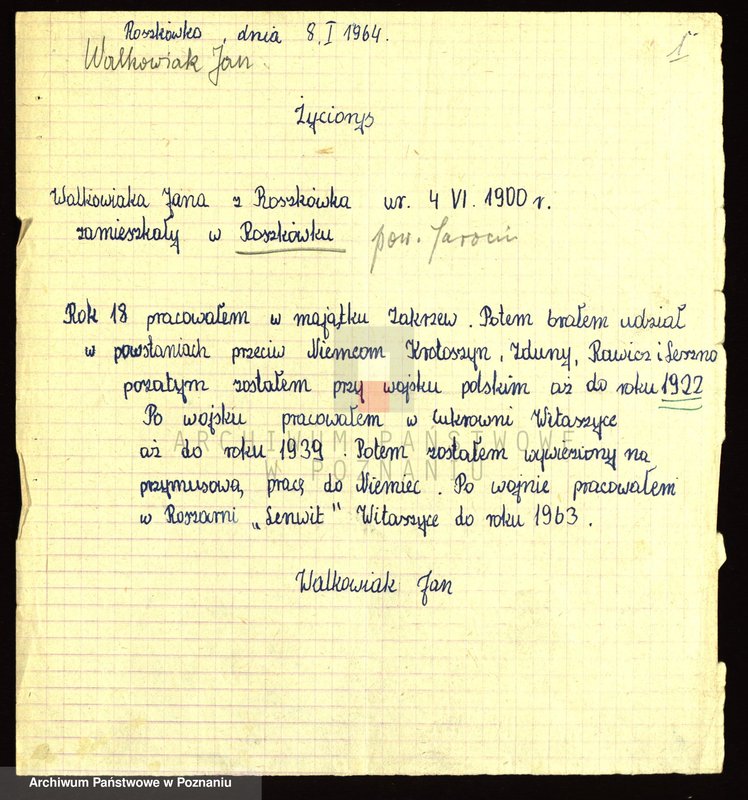 Roszkówko, dnia 8.I 1964.
Walkowiak Jan
1
Życiorys
Walkowiaka Jana z Roszkówka ur. 4 VI. 1900 r.
zamieszkały w Roszkówku pow. Jarocin
Rok 18 pracowałem w majątku Zakrzew. Potem brałem udział
w powstaniach przeciw Niemcom Krotoszyn, Zduny, Rawicz i Leszno
pozatym zostałem przy wojsku polskim aż do roku 1922
Po wojsku pracowałem w cukrowni Witaszyce
aż do roku 1939. Potem zostałem wywieziony na
przymusową pracę do Niemiec. Po wojnie pracowałem
w Roszarni „Lenwit" Witaszyce do roku 1963.
Walkowiak Jan
ARCHIWUM PAŃSTWOWE
W POZNANIU
Archiwum Państwowe w Poznaniu